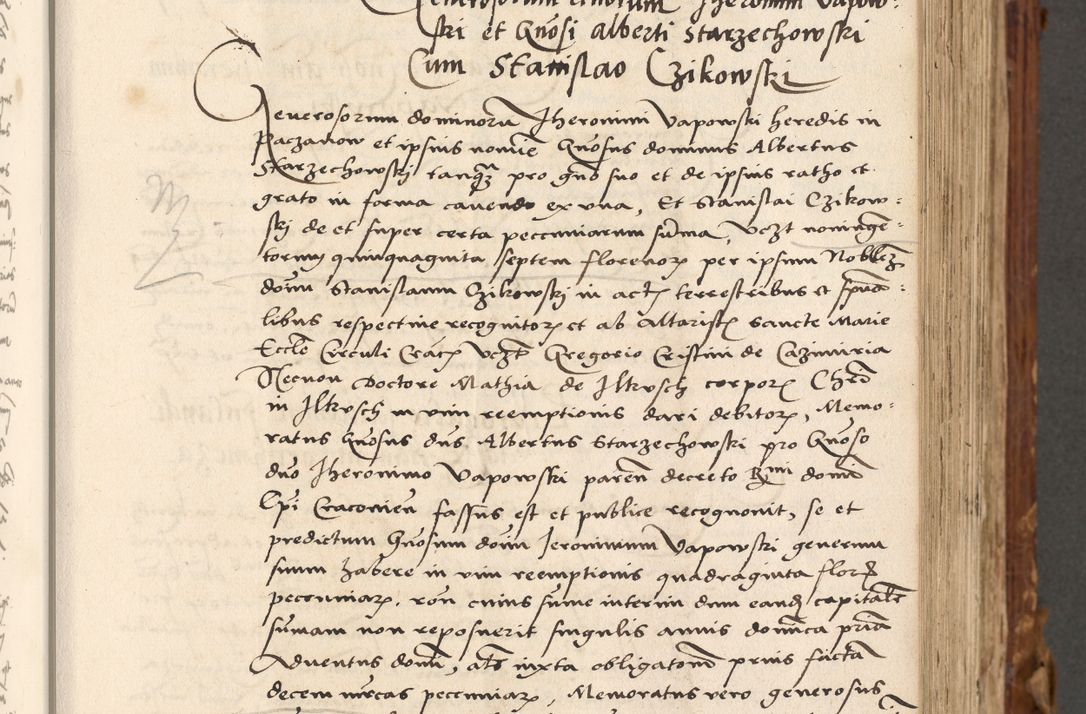 Generosorum virorum Iheronimi Vapow-
ski et Gnosi Alberti Starzechowski
Cum Stanislao Czikowski
Generosorum dominorum Iheronimi Vapowski heredis in
Paczanow et ipsius nomine Gnosus dominus Albertus
Starzechowskj tanqz pro gno suo et de ipsius ratho et
grato in forma cavendo ex una, Et Stanislai Czikow-
skj de et super certa pecuniarum suma, vczt noningē-
torum quinquaginta septem florenor per ipsum Noblez
dom Stanislaum Czikowskj in actis terrestribus et spua-
libus respective recognitor et ab Altaristis Sancte Marie
Eccle Circuli Crac vczt Gregorio Cristini de Cazimiria
Necnon Doctore Mathia de Ilkusch corporis Chri
in Ilkusch in vim reemptionis dari debitor, Memo-
ratus Gnosus dns Albertus Starzechowski pro Gnoso
dno Iheronimo Vapowski paren decreto Rmi domi
Epi Cracovien fassus est et publice recognovit, se et
predictum Gnosum dom Ieronimum Vapowski generum
suum habere in vim reemptionis quadraginta flor
pecuniar. ron cuius sume interim dum eandz capitale
sumam non reposuerit singulis annis domca pria
Adventus domi, als iuxta obligatom prius facta
decem mrcas pecuniar, Memoratus vero generosus